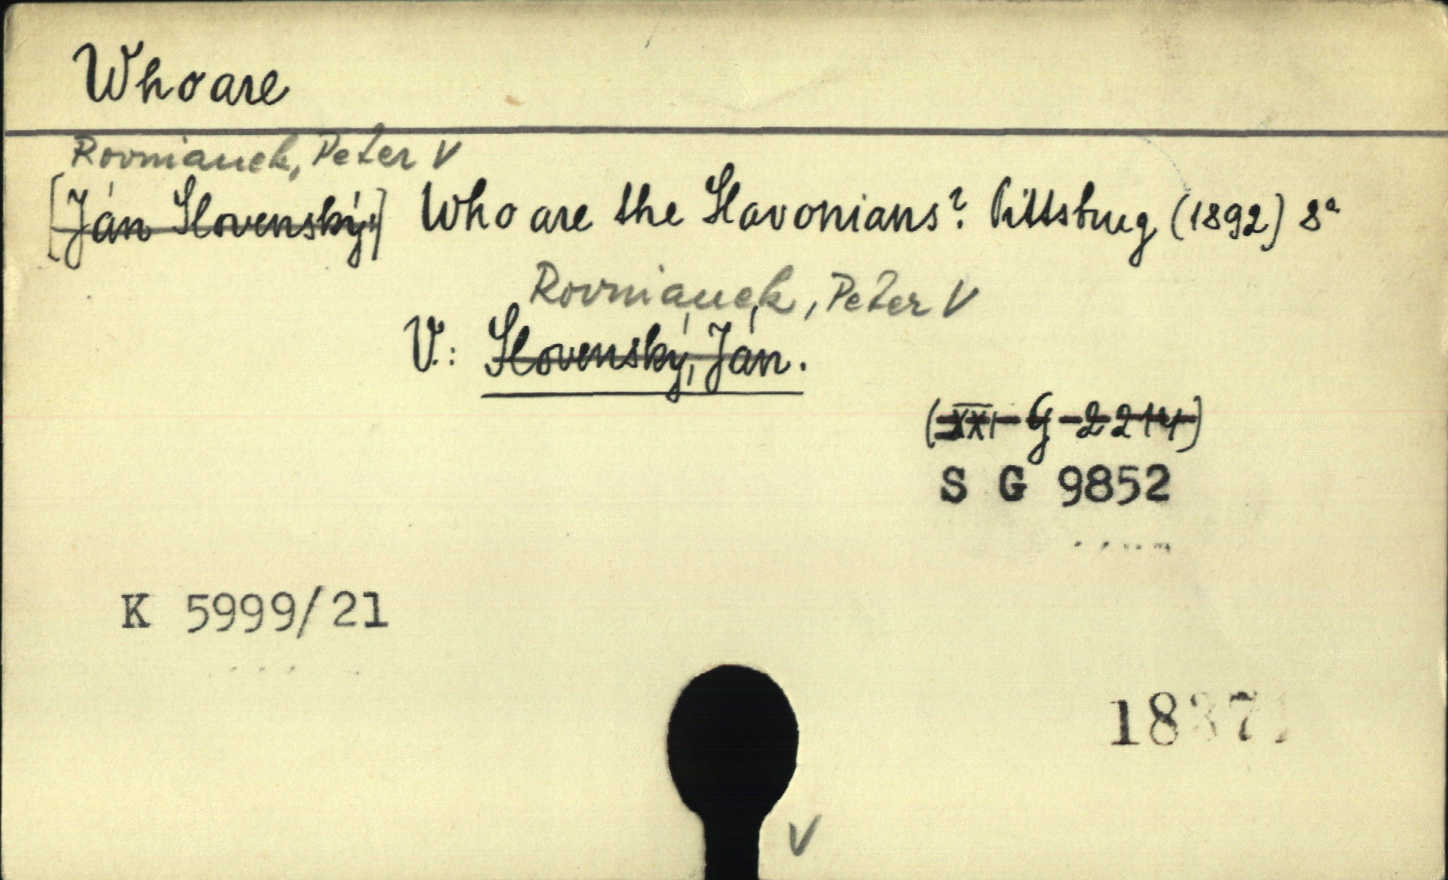 Who are
Rovnianek, Peter V
[Ján Slovenský] Who are the Slavonians? Pittsburg (1892) 8°
Rovnianek, Peter V
V: Slovenský, Ján.
(XXI-G-2214)
S G 9852
K 5999/21
V